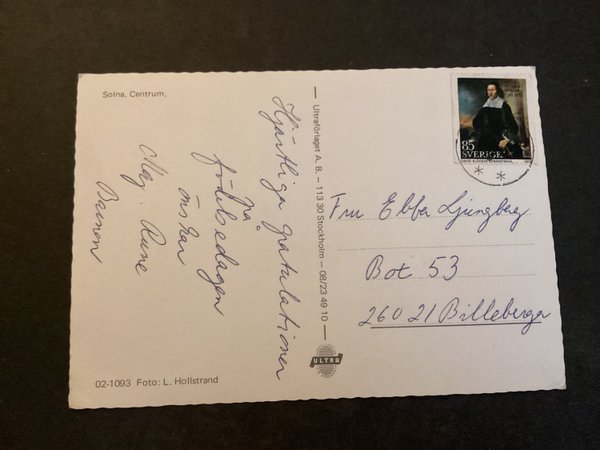 Solna, Centrum,
Hjärtliga gratulationer
på
födelsedagen
önskar
Maj, Rune
Ultraförlaget A. B. – 113 30 Stockholm – 08/23 49 10
ULTRA
85
SVERIGE
Fru Ebba Ljungberg
Box 53
260 21 Billeberga
02-1093 Foto: L. Hollstrand